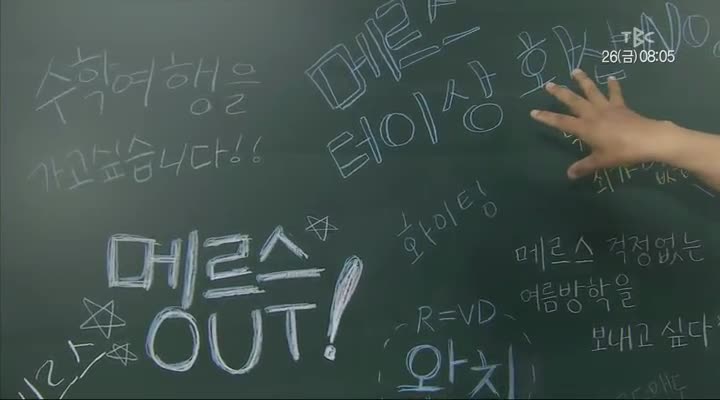 TBC
26(금) 08:05
수학여행을
가고싶습니다!!
메르스
더이상 확산 NO
화이팅
메르스 OUT!
메르스 걱정없는
여름방학을
보내고 싶다
R=VD
완치